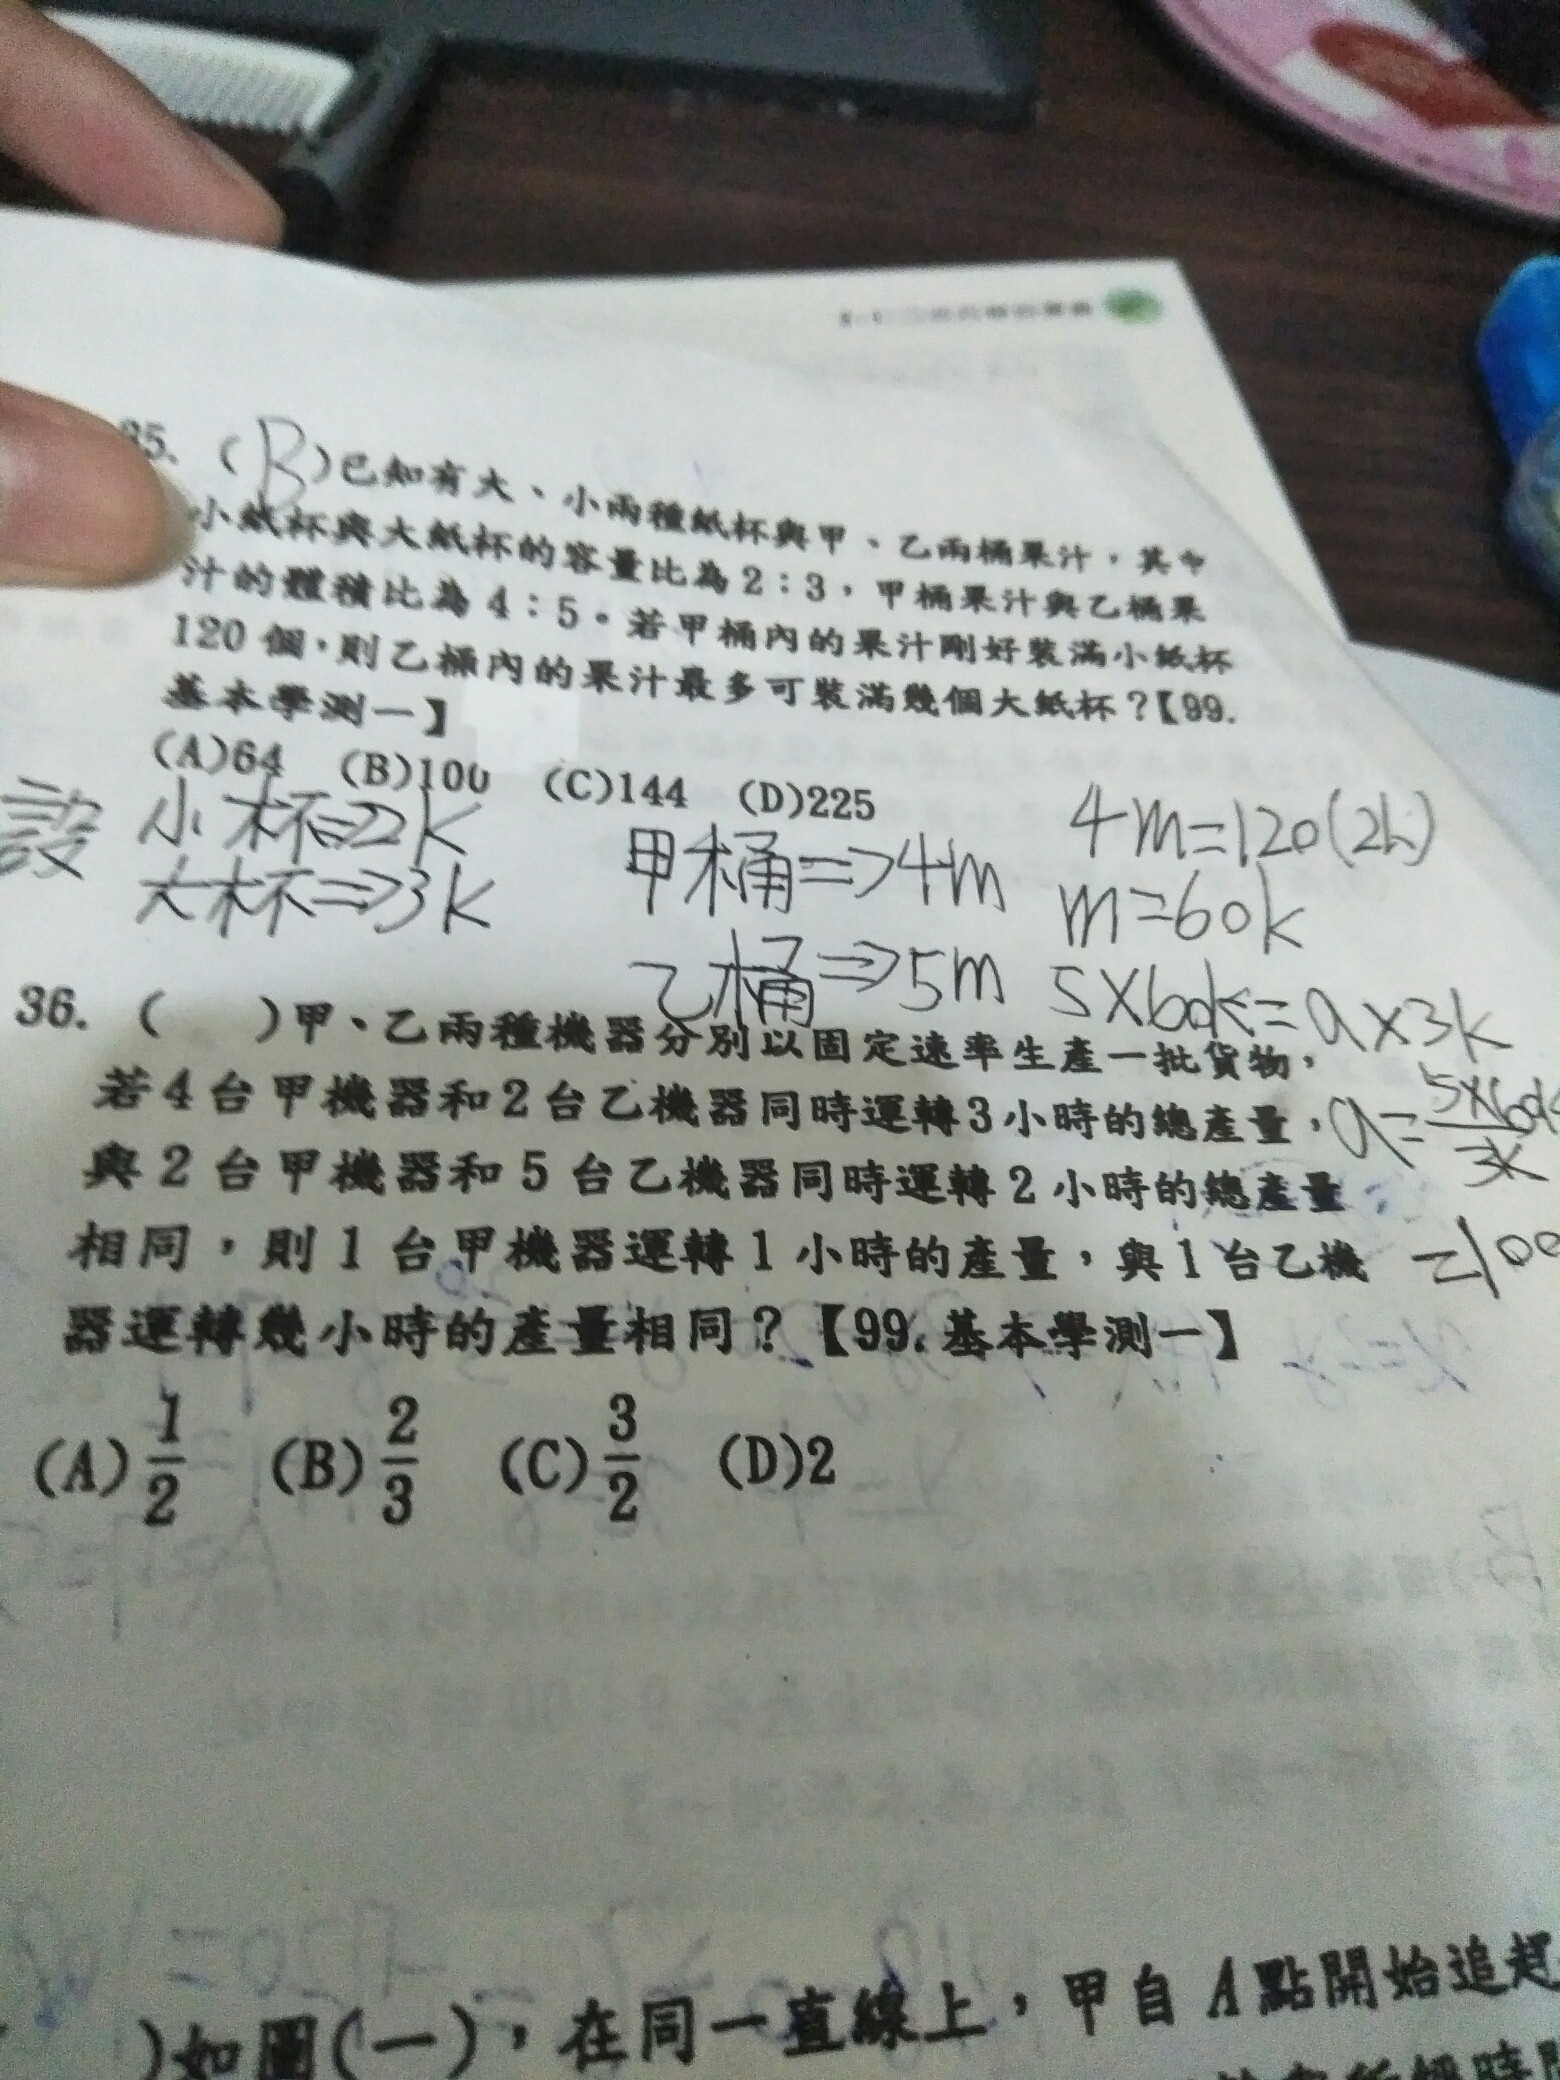 35. (B)已知有大、小兩種紙杯與甲、乙兩桶果汁,其中
小紙杯與大紙杯的容量比為2:3,甲桶果汁與乙桶果
汁的體積比為4:5。若甲桶內的果汁剛好裝滿小紙杯
120個,則乙桶內的果汁最多可裝滿幾個大紙杯?【99.
基本學測一】
(A)64 (B)100 (C)144 (D)225
設 小杯=>2k
大杯=>3k
甲桶=>4m
乙桶=>5m
4m=120(2k)
m=60k
5×60k=a×3k
a=5×60k/3k
=100
36. ( )甲、乙兩種機器分別以固定速率生產一批貨物,
若4台甲機器和2台乙機器同時運轉3小時的總產量,
與2台甲機器和5台乙機器同時運轉2小時的總產量
相同,則1台甲機器運轉1小時的產量,與1台乙機
器運轉幾小時的產量相同?【99.基本學測一】
(A)1/2 (B)2/3 (C)3/2 (D)2
)如圖(一),在同一直線上,甲自A點開始追趕